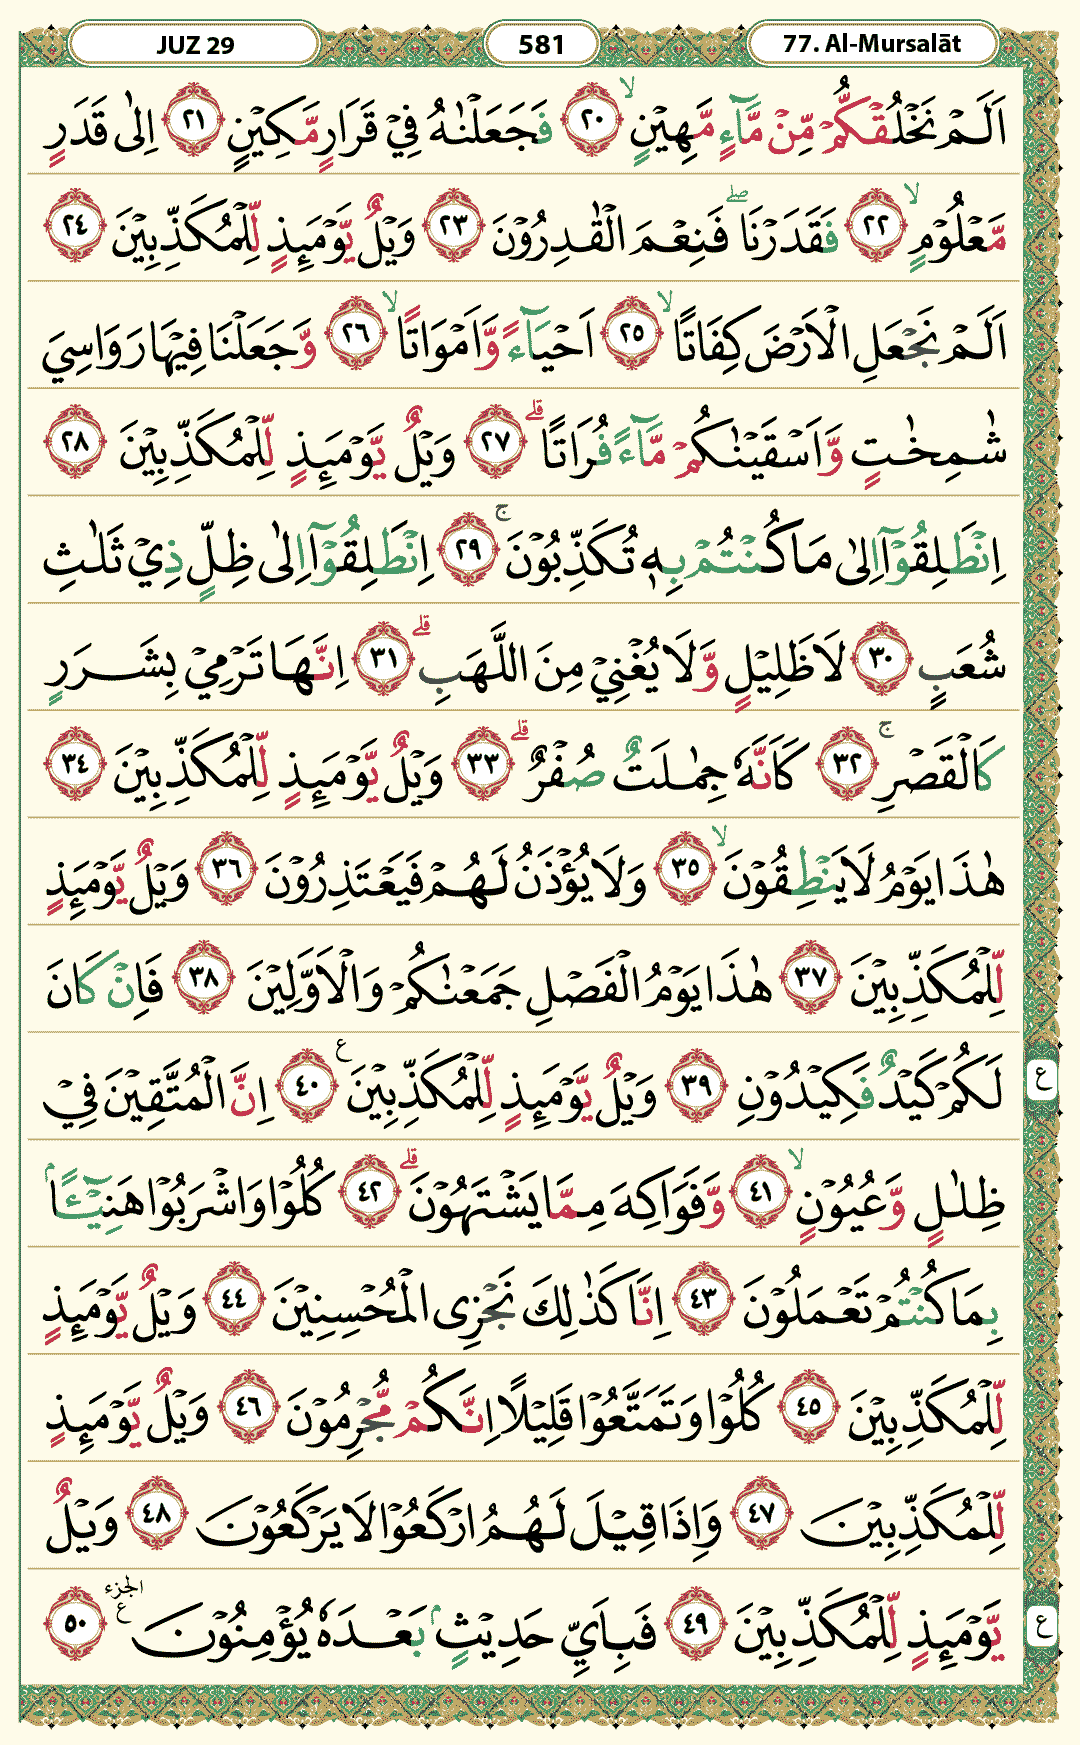 JUZ 29 581 77. Al-Mursalāt
اَلَمْ نَخْلُقْكُّمْ مِّنْ مَّآءٍ مَّهِيْنٍۙ ٢٠ فَجَعَلْنٰهُ فِيْ قَرَارٍ مَّكِيْنٍ ٢١ اِلٰى قَدَرٍ
مَّعْلُوْمٍۙ ٢٢ فَقَدَرْنَاۖ فَنِعْمَ الْقٰدِرُوْنَ ٢٣ وَيْلٌ يَّوْمَىِٕذٍ لِّلْمُكَذِّبِيْنَ ٢٤
اَلَمْ نَجْعَلِ الْاَرْضَ كِفَاتًاۙ ٢٥ اَحْيَاۤءً وَّاَمْوَاتًاۙ ٢٦ وَّجَعَلْنَا فِيْهَا رَوَاسِيَ
شٰمِخٰتٍ وَّاَسْقَيْنٰكُمْ مَّاۤءً فُرَاتًاۗ ٢٧ وَيْلٌ يَّوْمَىِٕذٍ لِّلْمُكَذِّبِيْنَ ٢٨
اِنْطَلِقُوْٓا اِلٰى مَا كُنْتُمْ بِهٖ تُكَذِّبُوْنَۚ ٢٩ اِنْطَلِقُوْٓا اِلٰى ظِلٍّ ذِيْ ثَلٰثِ
شُعَبٍ ٣٠ لَا ظَلِيْلٍ وَّلَا يُغْنِيْ مِنَ اللَّهَبِۗ ٣١ اِنَّهَا تَرْمِيْ بِشَرَرٍ
كَالْقَصْرِۚ ٣٢ كَاَنَّهٗ جِمٰلَتٌ صُفْرٌۗ ٣٣ وَيْلٌ يَّوْمَىِٕذٍ لِّلْمُكَذِّبِيْنَ ٣٤
هٰذَا يَوْمُ لَا يَنْطِقُوْنَۙ ٣٥ وَلَا يُؤْذَنُ لَهُمْ فَيَعْتَذِرُوْنَ ٣٦ وَيْلٌ يَّوْمَىِٕذٍ
لِّلْمُكَذِّبِيْنَ ٣٧ هٰذَا يَوْمُ الْفَصْلِ جَمَعْنٰكُمْ وَالْاَوَّلِيْنَ ٣٨ فَاِنْ كَانَ
لَكُمْ كَيْدٌ فَكِيْدُوْنِ ٣٩ وَيْلٌ يَّوْمَىِٕذٍ لِّلْمُكَذِّبِيْنَ ࣖ ٤٠ اِنَّ الْمُتَّقِيْنَ فِيْ ع
ظِلٰلٍ وَّعُيُوْنٍۙ ٤١ وَّفَوَاكِهَ مِمَّا يَشْتَهُوْنَۗ ٤٢ كُلُوْا وَاشْرَبُوْا هَنِيْۤـًٔاۢ
بِمَا كُنْتُمْ تَعْمَلُوْنَ ٤٣ اِنَّا كَذٰلِكَ نَجْزِى الْمُحْسِنِيْنَ ٤٤ وَيْلٌ يَّوْمَىِٕذٍ
لِّلْمُكَذِّبِيْنَ ٤٥ كُلُوْا وَتَمَتَّعُوْا قَلِيْلًا اِنَّكُمْ مُّجْرِمُوْنَ ٤٦ وَيْلٌ يَّوْمَىِٕذٍ
لِّلْمُكَذِّبِيْنَ ٤٧ وَاِذَا قِيْلَ لَهُمُ ارْكَعُوْا لَا يَرْكَعُوْنَ ٤٨ وَيْلٌ
يَّوْمَىِٕذٍ لِّلْمُكَذِّبِيْنَ ٤٩ فَبِاَيِّ حَدِيْثٍۢ بَعْدَهٗ يُؤْمِنُوْنَ ࣖ الجزء ٥٠ ع